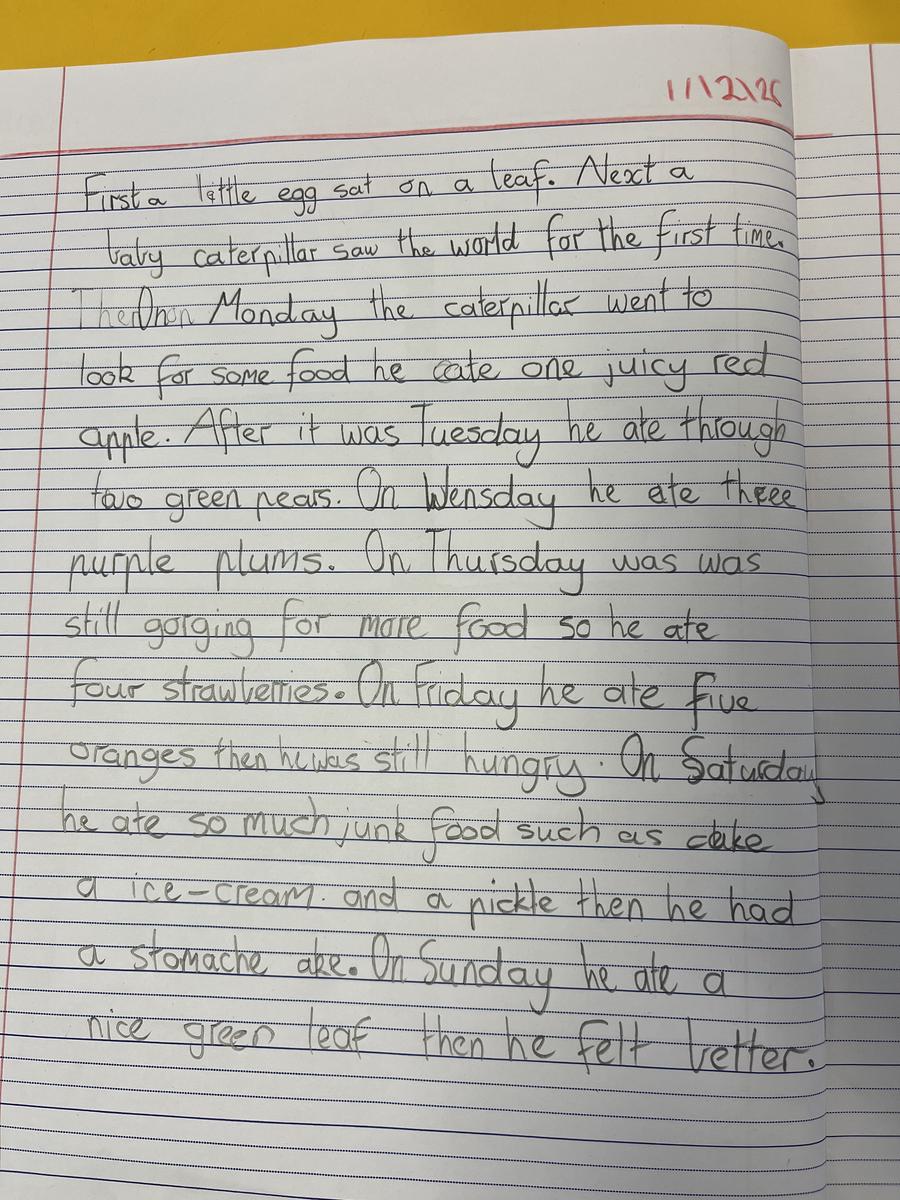 11/12/25
First a little egg sat on a leaf. Next a
baby caterpillar saw the world for the first time.
On Monday the caterpillar went to
look for some food he ate one juicy red
apple. After it was Tuesday he ate through
two green pears. On Wensday he ate three
purple plums. On Thursday was was
still gorging for more food so he ate
four strawberries. On Friday he ate five
oranges then he was still hungry. On Saturday
he ate so much junk food such as cake
a ice-cream. and a pickle then he had
a stomache ake. On Sunday he ate a
nice green leaf then he felt better.